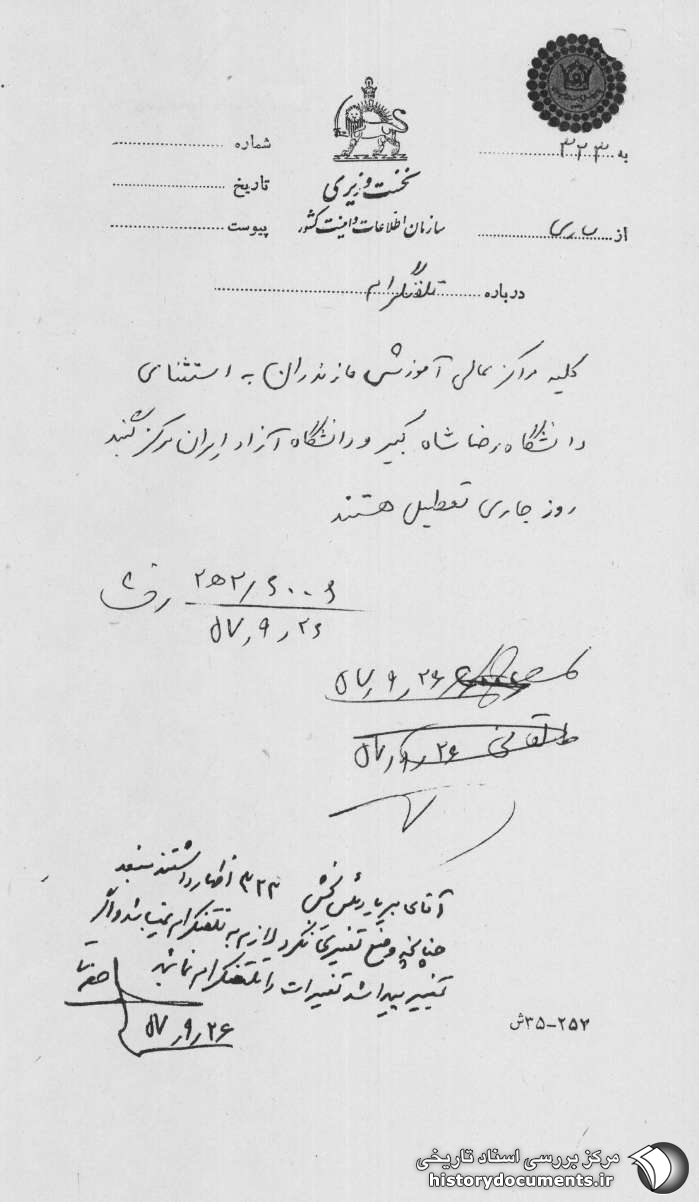 به ۳۲۳
شماره
نخست وزیری
تاریخ
سازمان اطلاعات و امنیت کشور
از ساری
پیوست
درباره تلفنگرام
کلیه مراکز عالی آموزشی مازندران به استثنای
دانشگاه رضا شاه کبیر و دانشگاه آزاد ایران مرکز گنبد
روز جاری تعطیل هستند
۲ه۲/۶۰۰۶
۵۷٫۹٫۲۶
۵۷٫۹٫۲۶
طالقانی ۵۷٫۹٫۲۶
آقای رئیس بخش ۳۲۳ اظهار داشتند منبعد
چنانچه وضع تغییری نکرد لازم به تلفنگرام نمیباشد و اگر
تغییر پیدا شد تغییرات را تلفنگرام نمائید
۵۷٫۹٫۲۶
۲۵۲-۳۵ش
مرکز بررسی اسناد تاریخی
historydocuments.ir